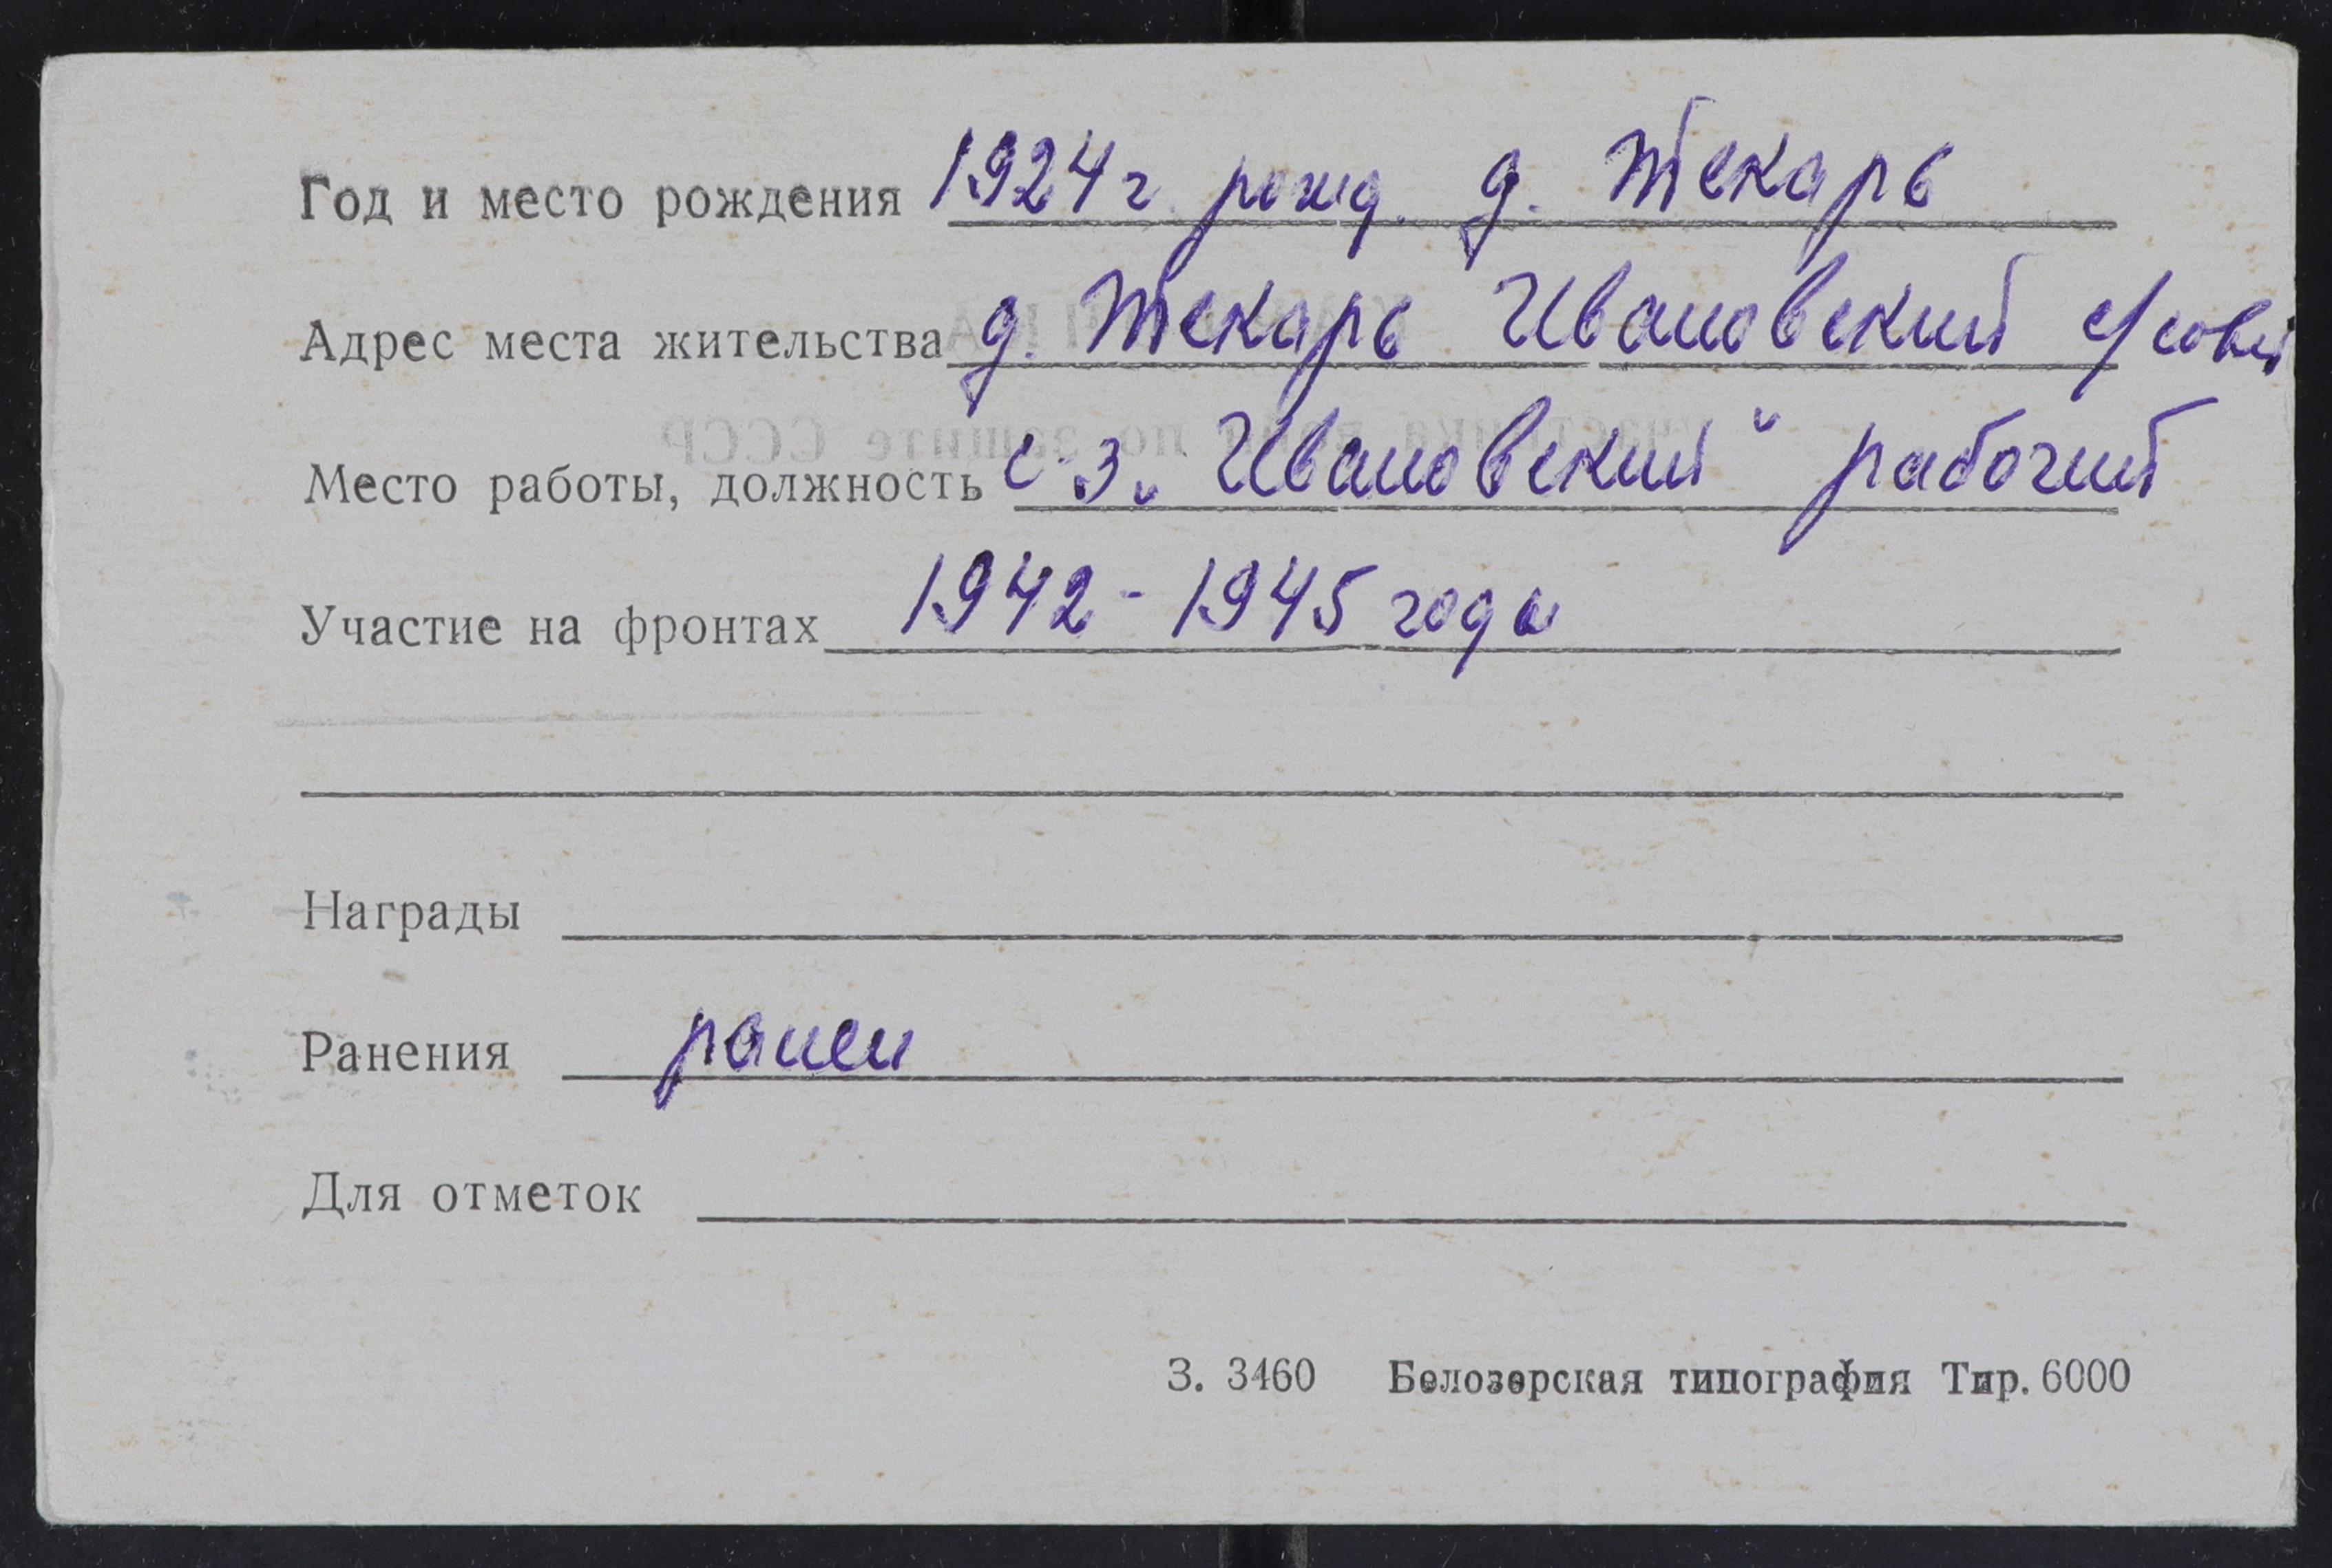 Год и место рождения 1924 г. рожд. д. Пекарь
Адрес места жительства д. Пекарь Ивановский с/совет
Место работы, должность с-з „Ивановский“ рабочий
Участие на фронтах 1942 - 1945 годы
Награды
Ранения ранен
Для отметок
З. 3460 Белозерская типография Тир. 6000